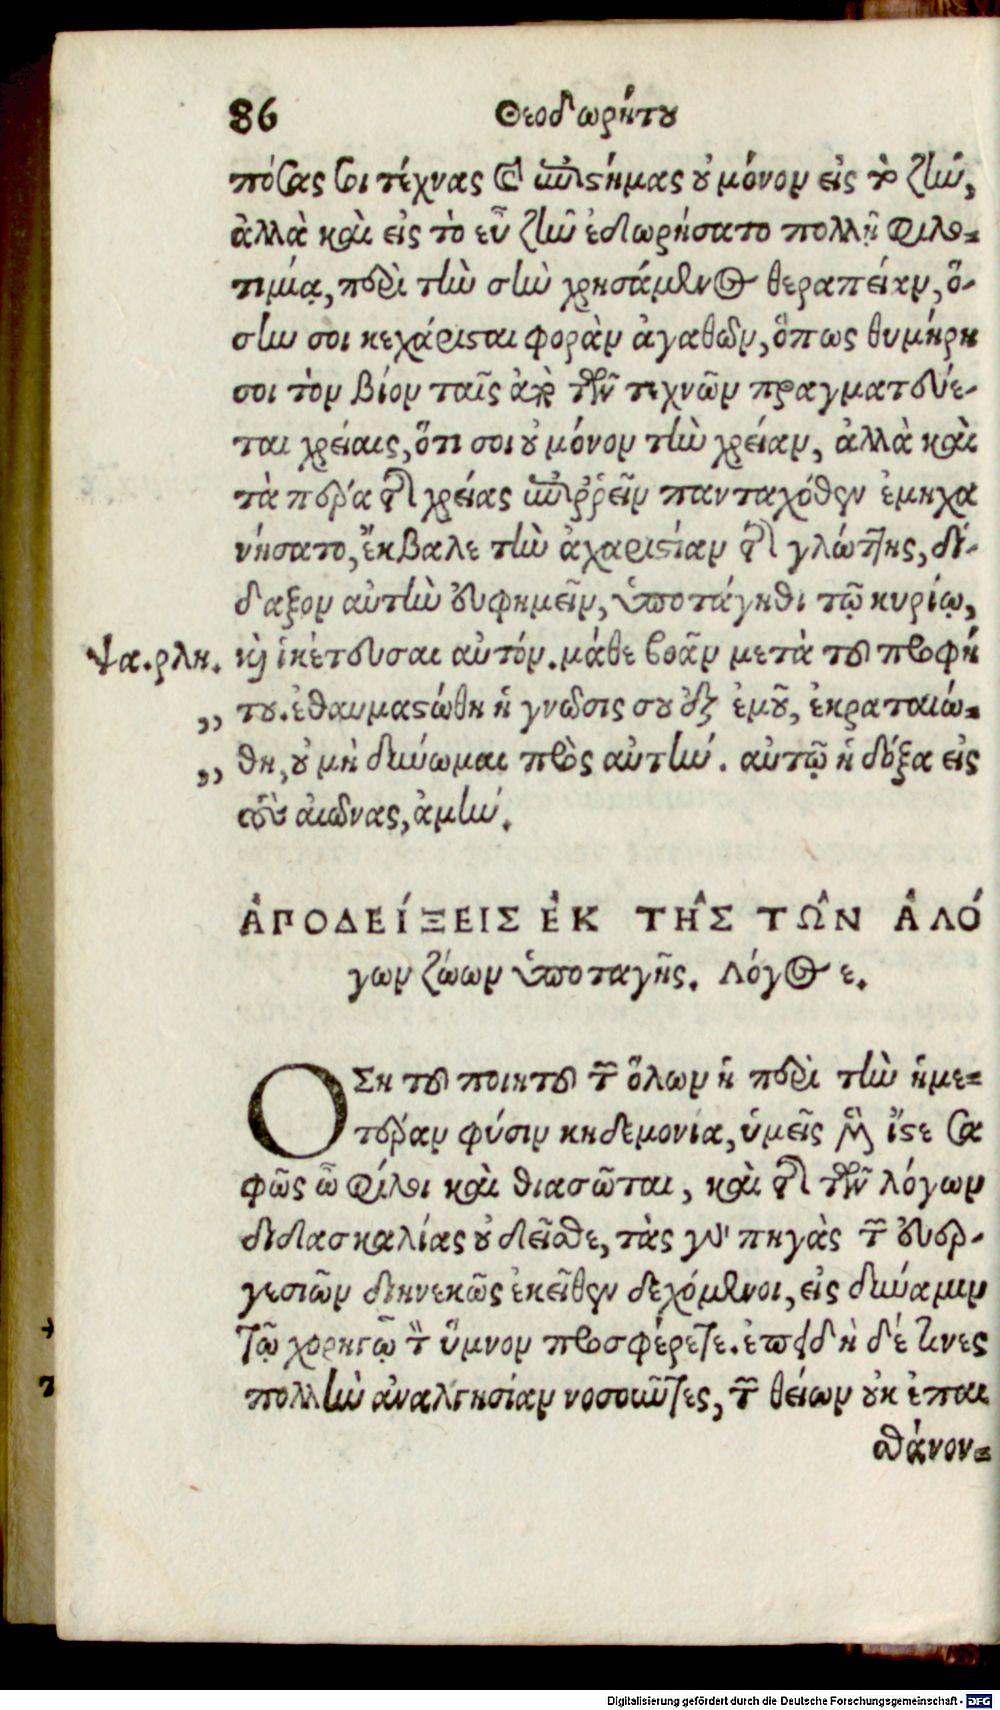 86 Θεοδωρήτου
πόσας σοι τέχνας καὶ ἐπιστήμας οὐ μόνον εἰς τὸ ζῆν,
ἀλλὰ καὶ εἰς τὸ εὖ ζῆν ἐδωρήσατο πολλῇ φιλο-
τιμίᾳ, περὶ τὴν σὴν χρησάμενος θεραπείαν, ὅ-
σην σοι κεχάρισται φορὰν ἀγαθῶν, ὅπως θυμήρη
σοι τὸν βίον ταῖς ἀπὸ τῶν τεχνῶν πραγματεύε-
ται χρείαις, ὅτι σοι οὐ μόνον τὴν χρείαν, ἀλλὰ καὶ
τὰ πέρα τῆς χρείας ἐπιῤῥεῖν πανταχόθεν ἐμηχα
νήσατο, ἔκβαλε τὴν ἀχαριστίαν τῆς γλώττης, δί-
δαξον αὐτὴν εὐφημεῖν, ὑποτάγηθι τῷ κυρίῳ,
Ψα.ρλη. καὶ ἱκέτευσαι αὐτόν. μάθε βοᾶν μετὰ τοῦ προφή
,, του. ἐθαυμαστώθη ἡ γνῶσις σου ἐξ ἐμοῦ, ἐκραταιώ-
,, θη, οὐ μὴ δύνωμαι πρὸς αὐτήν. αὐτῷ ἡ δόξα εἰς
τοὺς αἰῶνας, ἀμήν.
ἈΠΟΔΕΊΞΕΙΣ ἘΚ ΤΗ͂Σ ΤΩ͂Ν ἈΛΌ
γων ζώων ὑποταγῆς. Λόγος ε.
ΟΣη τοῦ ποιητοῦ τῶν ὅλων ἡ περὶ τὴν ἡμε-
τέραν φύσιν κηδεμονία, ὑμεῖς μὲν ἴστε σα
φῶς ὦ φίλοι καὶ θιασῶται, καὶ τῆς τῶν λόγων
διδασκαλίας οὐ δεῖσθε, τὰς γὰρ πηγὰς τῶν εὐερ-
γεσιῶν διηνεκῶς ἐκεῖθεν δεχόμενοι, εἰς δύναμιν
τῷ χορηγῷ τὸν ὕμνον προσφέρετε. ἐπειδὴ δέ τινες
πολλὴν ἀναλγησίαν νοσοῦντες, τῶν θείων οὐκ ἐπαι
σθάνον-
Digitalisierung gefördert durch die Deutsche Forschungsgemeinschaft - DFG